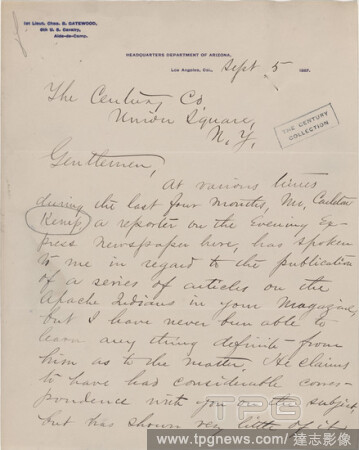 1st Lieut. Chas. B. GATEWOOD,
6th U. S. Cavalry,
Aide-de-Camp.
HEADQUARTERS DEPARTMENT OF ARIZONA,
Los Angeles, Cal., Sept 5 1887.
The Century Co,
Union Square,
N. Y.
THE CENTURY
COLLECTION
Gentlemen,
At various times
during the last four months, Mr. Carleton
Kemp, a reporter on the Evening Ex-
press newspaper here, has spoken
to me in regard to the publication
of a series of articles on the
Apache Indians in your Magazine,
but I have never been able to
learn any thing definite from
him as to the matter. He claims
to have had considerable corres-
pondence with you on the subject,
but has shown very little of it
TPG
www.tpgnews.com/達志影像